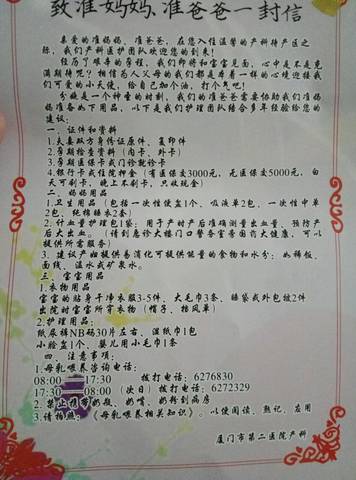 致准妈妈、准爸爸一封信
亲爱的准妈妈,准爸爸,在您入住温馨的产科待产区之
际,我们产科医护团队欢迎您的到来!
经历了艰辛的孕程,我们即将和宝宝见面,心中是不是充
满期待呢?相信为人父母的我们都是带着一样的心情迎接我
们可爱的小天使,给自己加个油,打个气吧!
分娩是一个神圣的时刻,我们的准爸爸需要协助我们准妈
妈准备如下用品,以下是我们护理团队结合多年经验给您的
建议:
一、证件和资料
1.夫妻双方身份证原件、复印件
2.孕期检查资料(内卡、外卡)
3.孕期医保卡或门诊就诊卡
4.银行卡或住院押金(有医保交3000元,无医保交5000元,白
天可刷卡,晚上不刷卡,只收现金)
二、妈妈用品
1.卫生用品(包括一次性便盆1个、吸淋单2包、一次性中单
2包,纯棉睡衣2套)
2.计血量护理包1袋:用于产时产后准确测量出血量,预防产
后大出血。(请到急诊大楼门口鹭李堂李国药大健康,可以
提供所需服务)
3、建议产妇提供易消化可提供能量的食物和水分:如稀饭、
面线、温水或矿泉水。
三、宝宝用品
1.衣物用品
宝宝的贴身干净衣服3-5件、大毛巾3条、睡袋或外包被2件
出院时宝宝所有衣物(帽子、挡风单)
2.护理用品:
纸尿裤NB码30片左右、湿纸巾1包
小脸盆1个、婴儿用小毛巾1条
四、注意事项:
1.母乳喂养咨询电话:
08:00——17:30 拨打电话:6276830
17:30——08:00(次日)拨打电话:6272329
2.禁止携带奶瓶、奶嘴、奶粉到病房
3.请扫描:《母乳喂养相关知识》。以便阅读、熟记、应用
厦门市第二医院产科